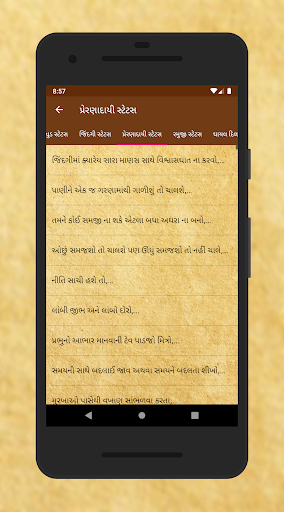 8:57
પ્રેરણાદાયી સ્ટેટસ
યુડ સ્ટેટસ જિંદગી સ્ટેટસ પ્રેરણાદાયી સ્ટેટસ રમુજી સ્ટેટસ ઘાયલ દિલ
જિંદગીમાં ક્યારેય સારા માણસ સાથે વિશ્વાસઘાત ના કરવો,...
પાણીને એક જ ગરણામાંથી ગાળીશું તો ચાલશે,...
તમને કોઈ સમજી ના શકે એટલા બધા અઘરા ના બનો,...
ઓછું સમજશો તો ચાલશે પણ ઊંધુ સમજશો તો નહીં ચાલે,...
નીતિ સાચી હશે તો,...
લાંબી જીભ અને લાબો દોરો,...
પ્રભુનો આભાર માનવાની ટેવ પાડજો મિત્રો,...
સમયની સાથે બદલાઈ જાવ અથવા સમયને બદલતા શીખો,...
મુરખાઓ પાસેથી વખાણ સાંભળવા કરતા,...